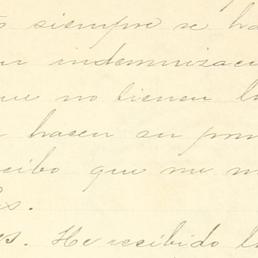 siempre se ha
indemnizac
que no tienen l
hacen su pon
cibo que me m
es. He recibido l